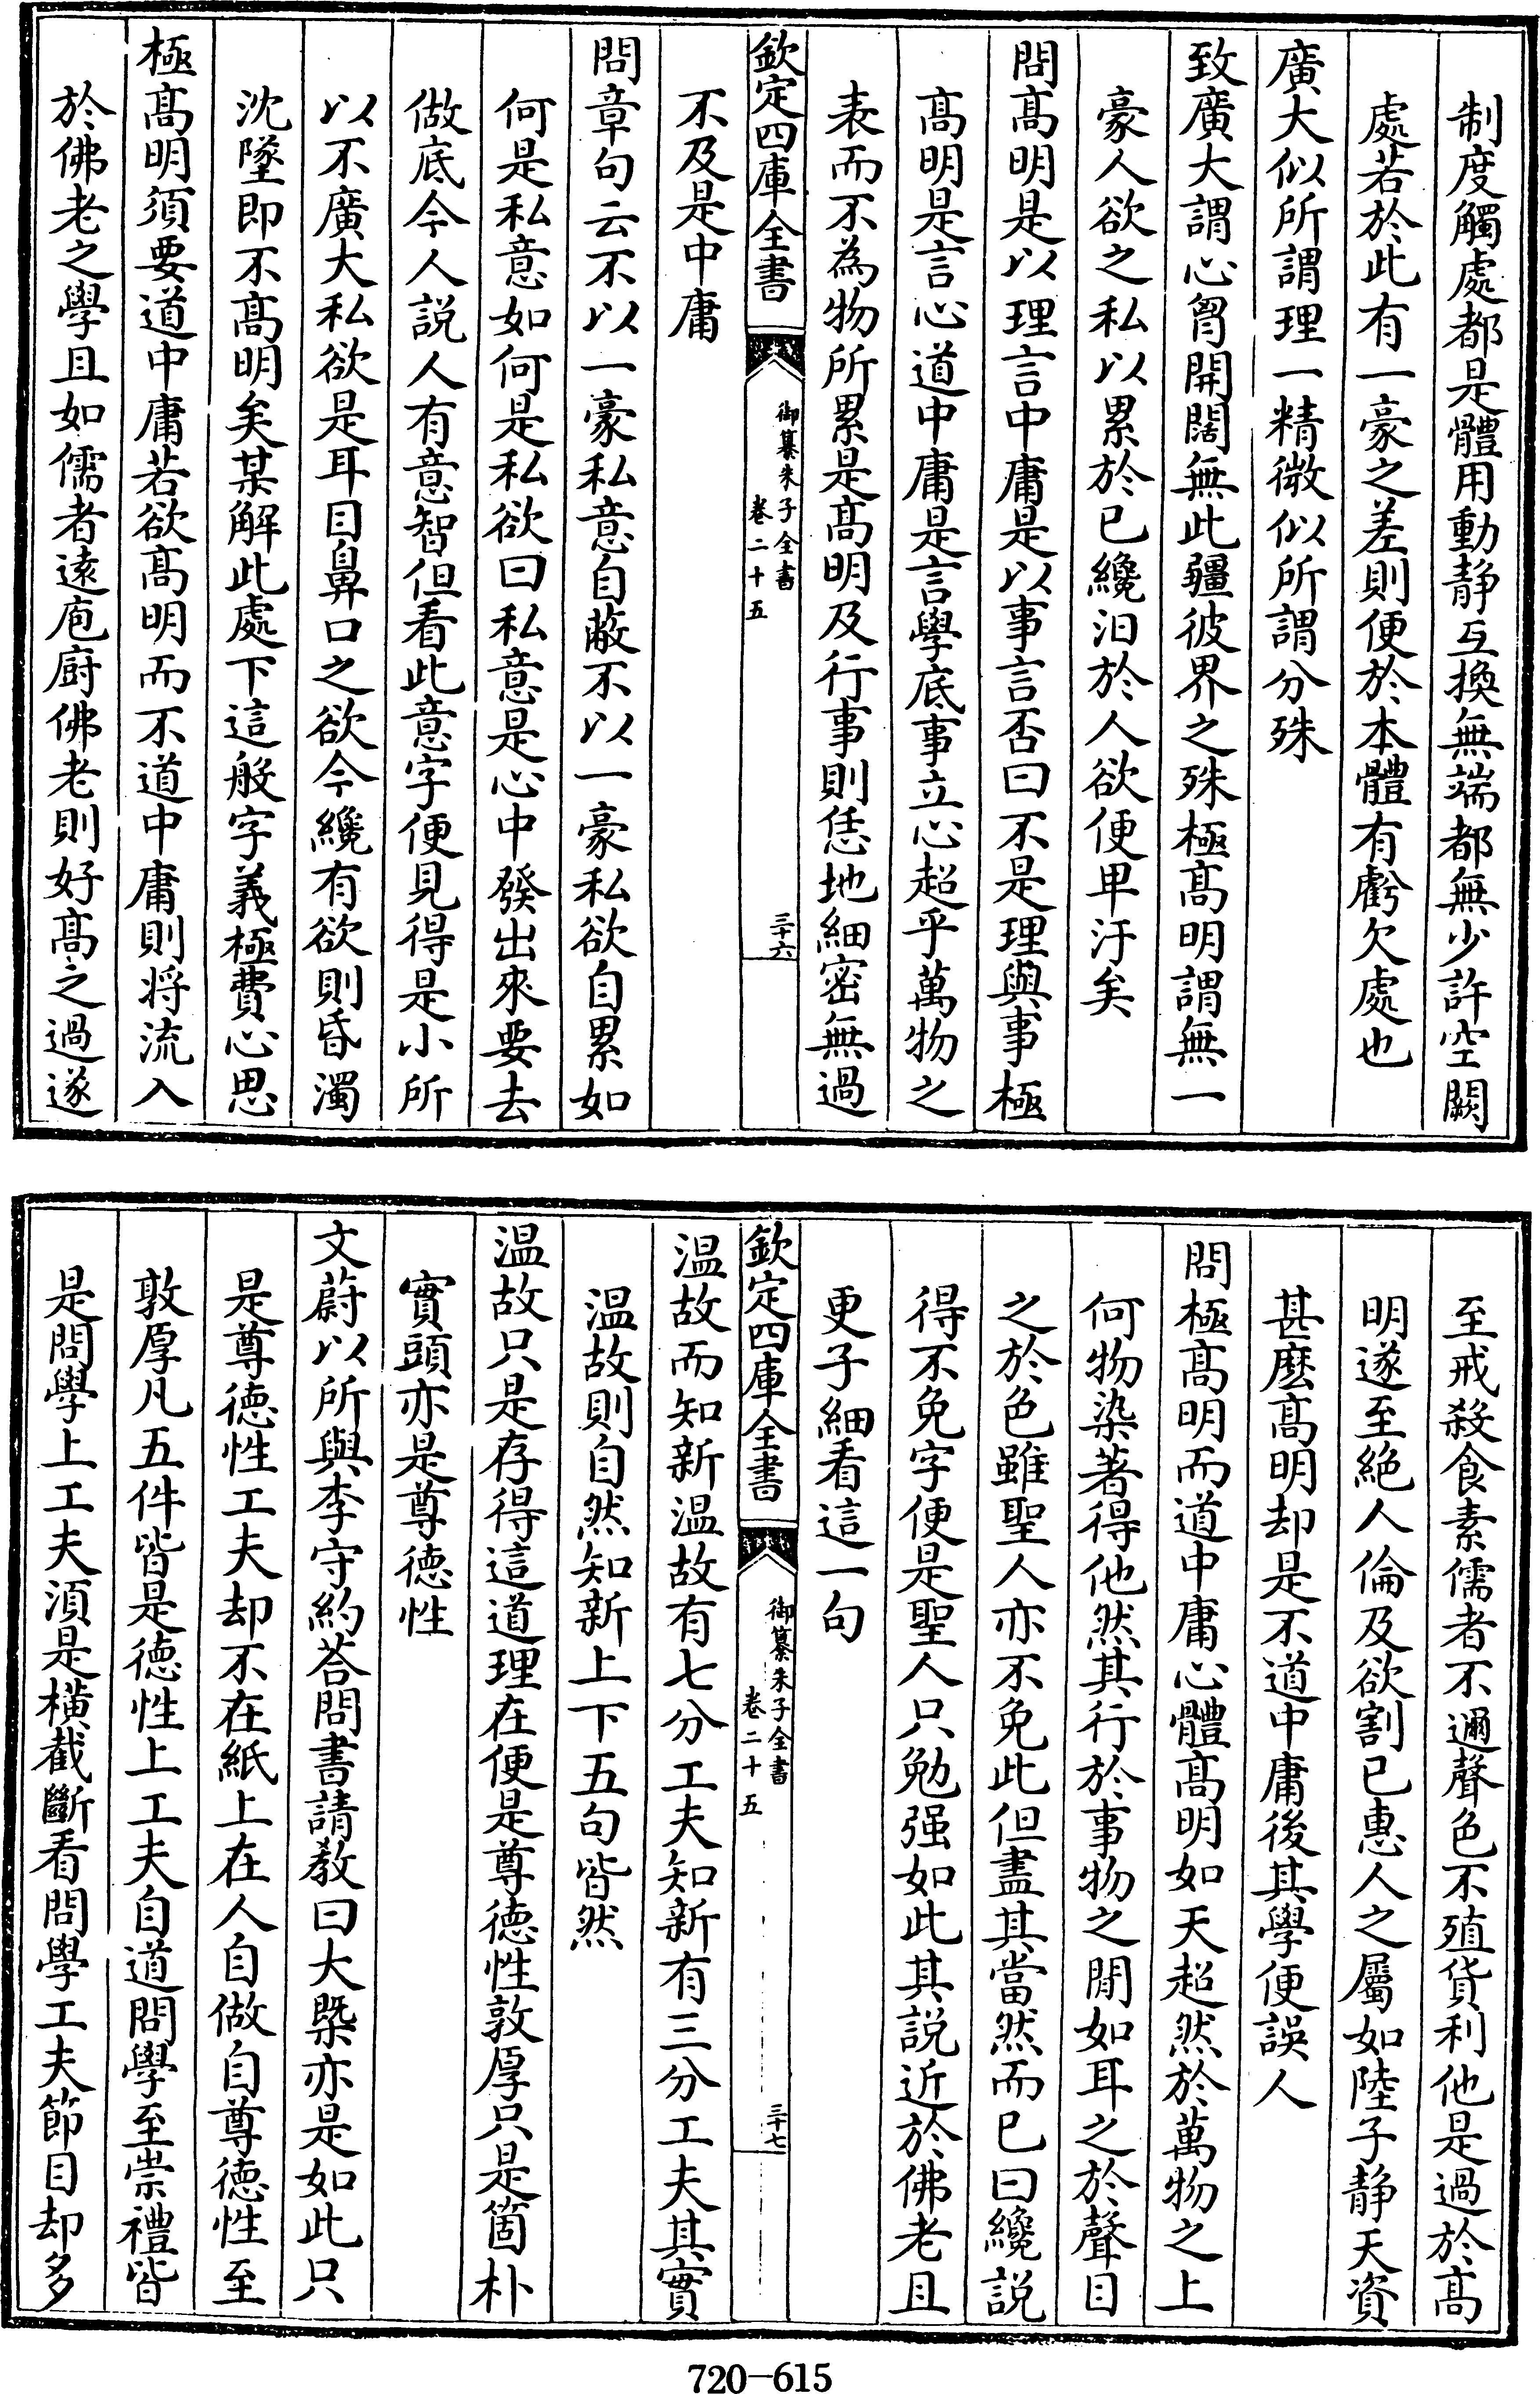 制度觸處都是體用動静互換無端都無少許空闕
處若於此有一豪之差則便於本體有虧欠處也
廣大似所謂理一精微似所謂分殊
致廣大謂心胷開闊無此疆彼界之殊極髙明謂無一
豪人欲之私以累於已纔汨於人欲便卑汙矣
問髙明是以理言中庸是以事言否曰不是理與事極
髙明是言心道中庸是言學底事立心超乎萬物之
表而不為物所累是髙明及行事則恁地細密無過
欽定四庫全書
御纂朱子全書
卷二十五
三十六
不及是中庸
問章句云不以一豪私意自蔽不以一豪私欲自累如
何是私意如何是私欲曰私意是心中發出來要去
做底今人説人有意智但看此意字便見得是小所
以不廣大私欲是耳目鼻口之欲今纔有欲則昏濁
沈墜即不髙明矣某解此處下這般字義極費心思
極髙明須要道中庸若欲髙明而不道中庸則将流入
於佛老之學且如儒者遠庖廚佛老則好髙之過遂
至戒殺食素儒者不邇聲色不殖貨利他是過於髙
明遂至絶人倫及欲割已惠人之屬如陸子静天資
甚麽髙明却是不道中庸後其學便誤人
問極髙明而道中庸心體髙明如天超然於萬物之上
何物染著得他然其行於事物之閒如耳之於聲目
之於色雖聖人亦不免此但盡其當然而已曰纔説
得不免字便是聖人只勉强如此其説近於佛老且
更子細看這一句
欽定四庫全書
御纂朱子全書
卷二十五
三十七
溫故而知新溫故有七分工夫知新有三分工夫其實
溫故則自然知新上下五句皆然
溫故只是存得這道理在便是尊徳性敦厚只是箇朴
實頭亦是尊徳性
文蔚以所與李守約荅問書請教曰大槩亦是如此只
是尊徳性工夫却不在紙上在人自做自尊徳性至
敦厚凡五件皆是徳性上工夫自道問學至崇禮皆
是問學上工夫須是橫截斷看問學工夫節目却多
720-615